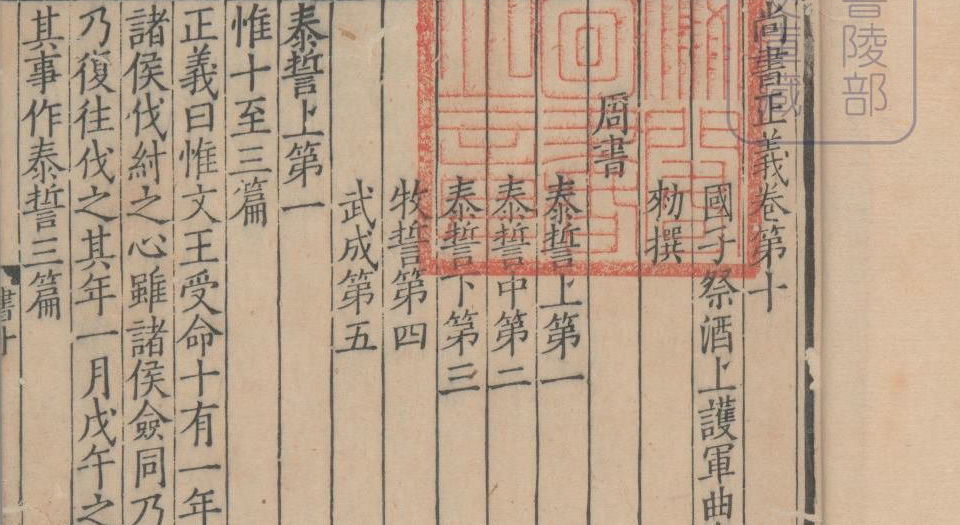 尚書正義卷第十
國子祭酒上護軍曲
勑撰
周書
泰誓上第一
泰誓中第二
泰誓下第三
牧誓第四
武成第五
泰誓上第一
惟十至三篇
正義曰惟文王受命十有一年
諸侯伐紂之心雖諸侯僉同乃
乃復往伐之其年一月戊午之
其事作泰誓三篇
書十
陵部